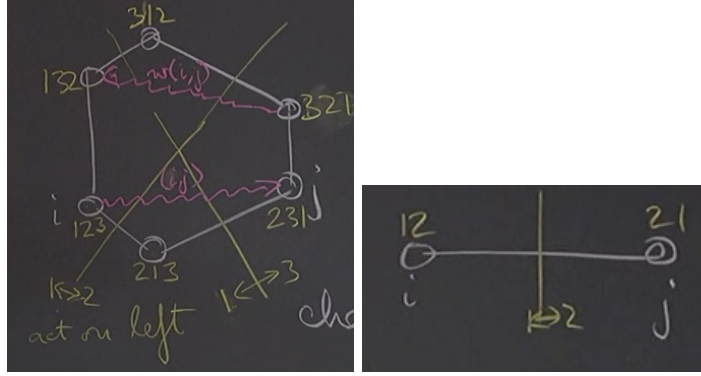 312
132
w(i,j)
321
(i,j)
i
123
231
j
213
1↔2
1↔3
act on left
12
21
i
j
1↔2